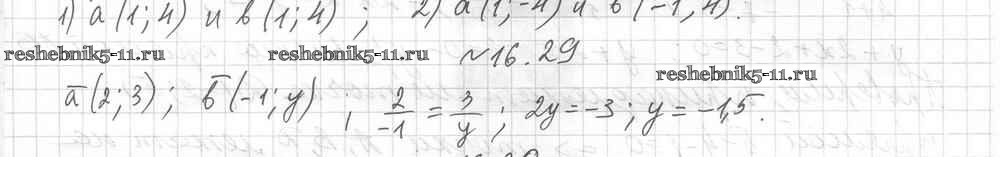 1) a̅ (1; 4) и b̅ (1; 4) ; 2) a̅ (1; -4) и b̅ (-1, 4).
№16.29
reshebnik5-11.ru reshebnik5-11.ru reshebnik5-11.ru
a̅ (2; 3); b̅ (-1; y) ; 2/-1 = 3/y ; 2y = -3; y = -1,5.